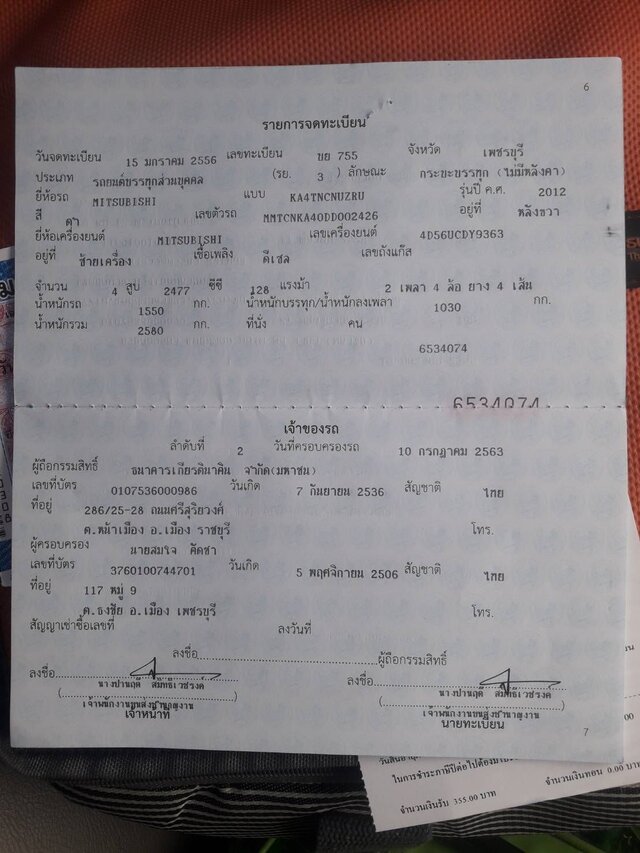 6
รายการจดทะเบียน
วันจดทะเบียน 15 มกราคม 2556 เลขทะเบียน บย 755 จังหวัด เพชรบุรี
ประเภท รถยนต์บรรทุกส่วนบุคคล (รย. 3 ) ลักษณะ กระบะบรรทุก (ไม่มีหลังคา)
ยี่ห้อรถ MITSUBISHI แบบ KA4TNCNUZRU รุ่นปี ค.ศ. 2012
สี ดำ เลขตัวรถ MMTCNKA40DD002426 อยู่ที่ หลังขวา
ยี่ห้อเครื่องยนต์ MITSUBISHI เลขเครื่องยนต์ 4D56UCDY9363
อยู่ที่ ซ้ายเครื่อง เชื้อเพลิง ดีเซล เลขถังแก๊ส
จำนวน 4 สูบ 2477 ซีซี 128 แรงม้า 2 เพลา 4 ล้อ ยาง 4 เส้น
น้ำหนักรถ 1550 กก. น้ำหนักบรรทุก/น้ำหนักลงเพลา 1030 กก.
น้ำหนักรวม 2580 กก. ที่นั่ง คน
6534074
6534074
เจ้าของรถ
ลำดับที่ 2 วันที่ครอบครองรถ 10 กรกฎาคม 2563
ผู้ถือกรรมสิทธิ์ ธนาคารเกียรตินาคิน จำกัด(มหาชน)
เลขที่บัตร 0107536000986 วันเกิด 7 กันยายน 2536 สัญชาติ ไทย
ที่อยู่ 286/25-28 ถนนศรีสุริยวงศ์
ต.หน้าเมือง อ.เมือง ราชบุรี โทร.
ผู้ครอบครอง นายสมใจ คัดชา
เลขที่บัตร 3760100744701 วันเกิด 5 พฤศจิกายน 2506 สัญชาติ ไทย
ที่อยู่ 117 หมู่ 9
ต.ธงชัย อ.เมือง เพชรบุรี โทร.
สัญญาเช่าซื้อเลขที่ ลงวันที่
ลงชื่อ ผู้ถือกรรมสิทธิ์
ลงชื่อ ลงชื่อ
เจ้าพนักงานขนส่งชำนาญงาน เจ้าพนักงานขนส่งชำนาญงาน
เจ้าหน้าที่ นายทะเบียน
7
ในการชำระภาษีปีต่อไปต้อง
จำนวนเงินรับ 355.00 บาท จำนวนเงินทอน 0.00 บาท